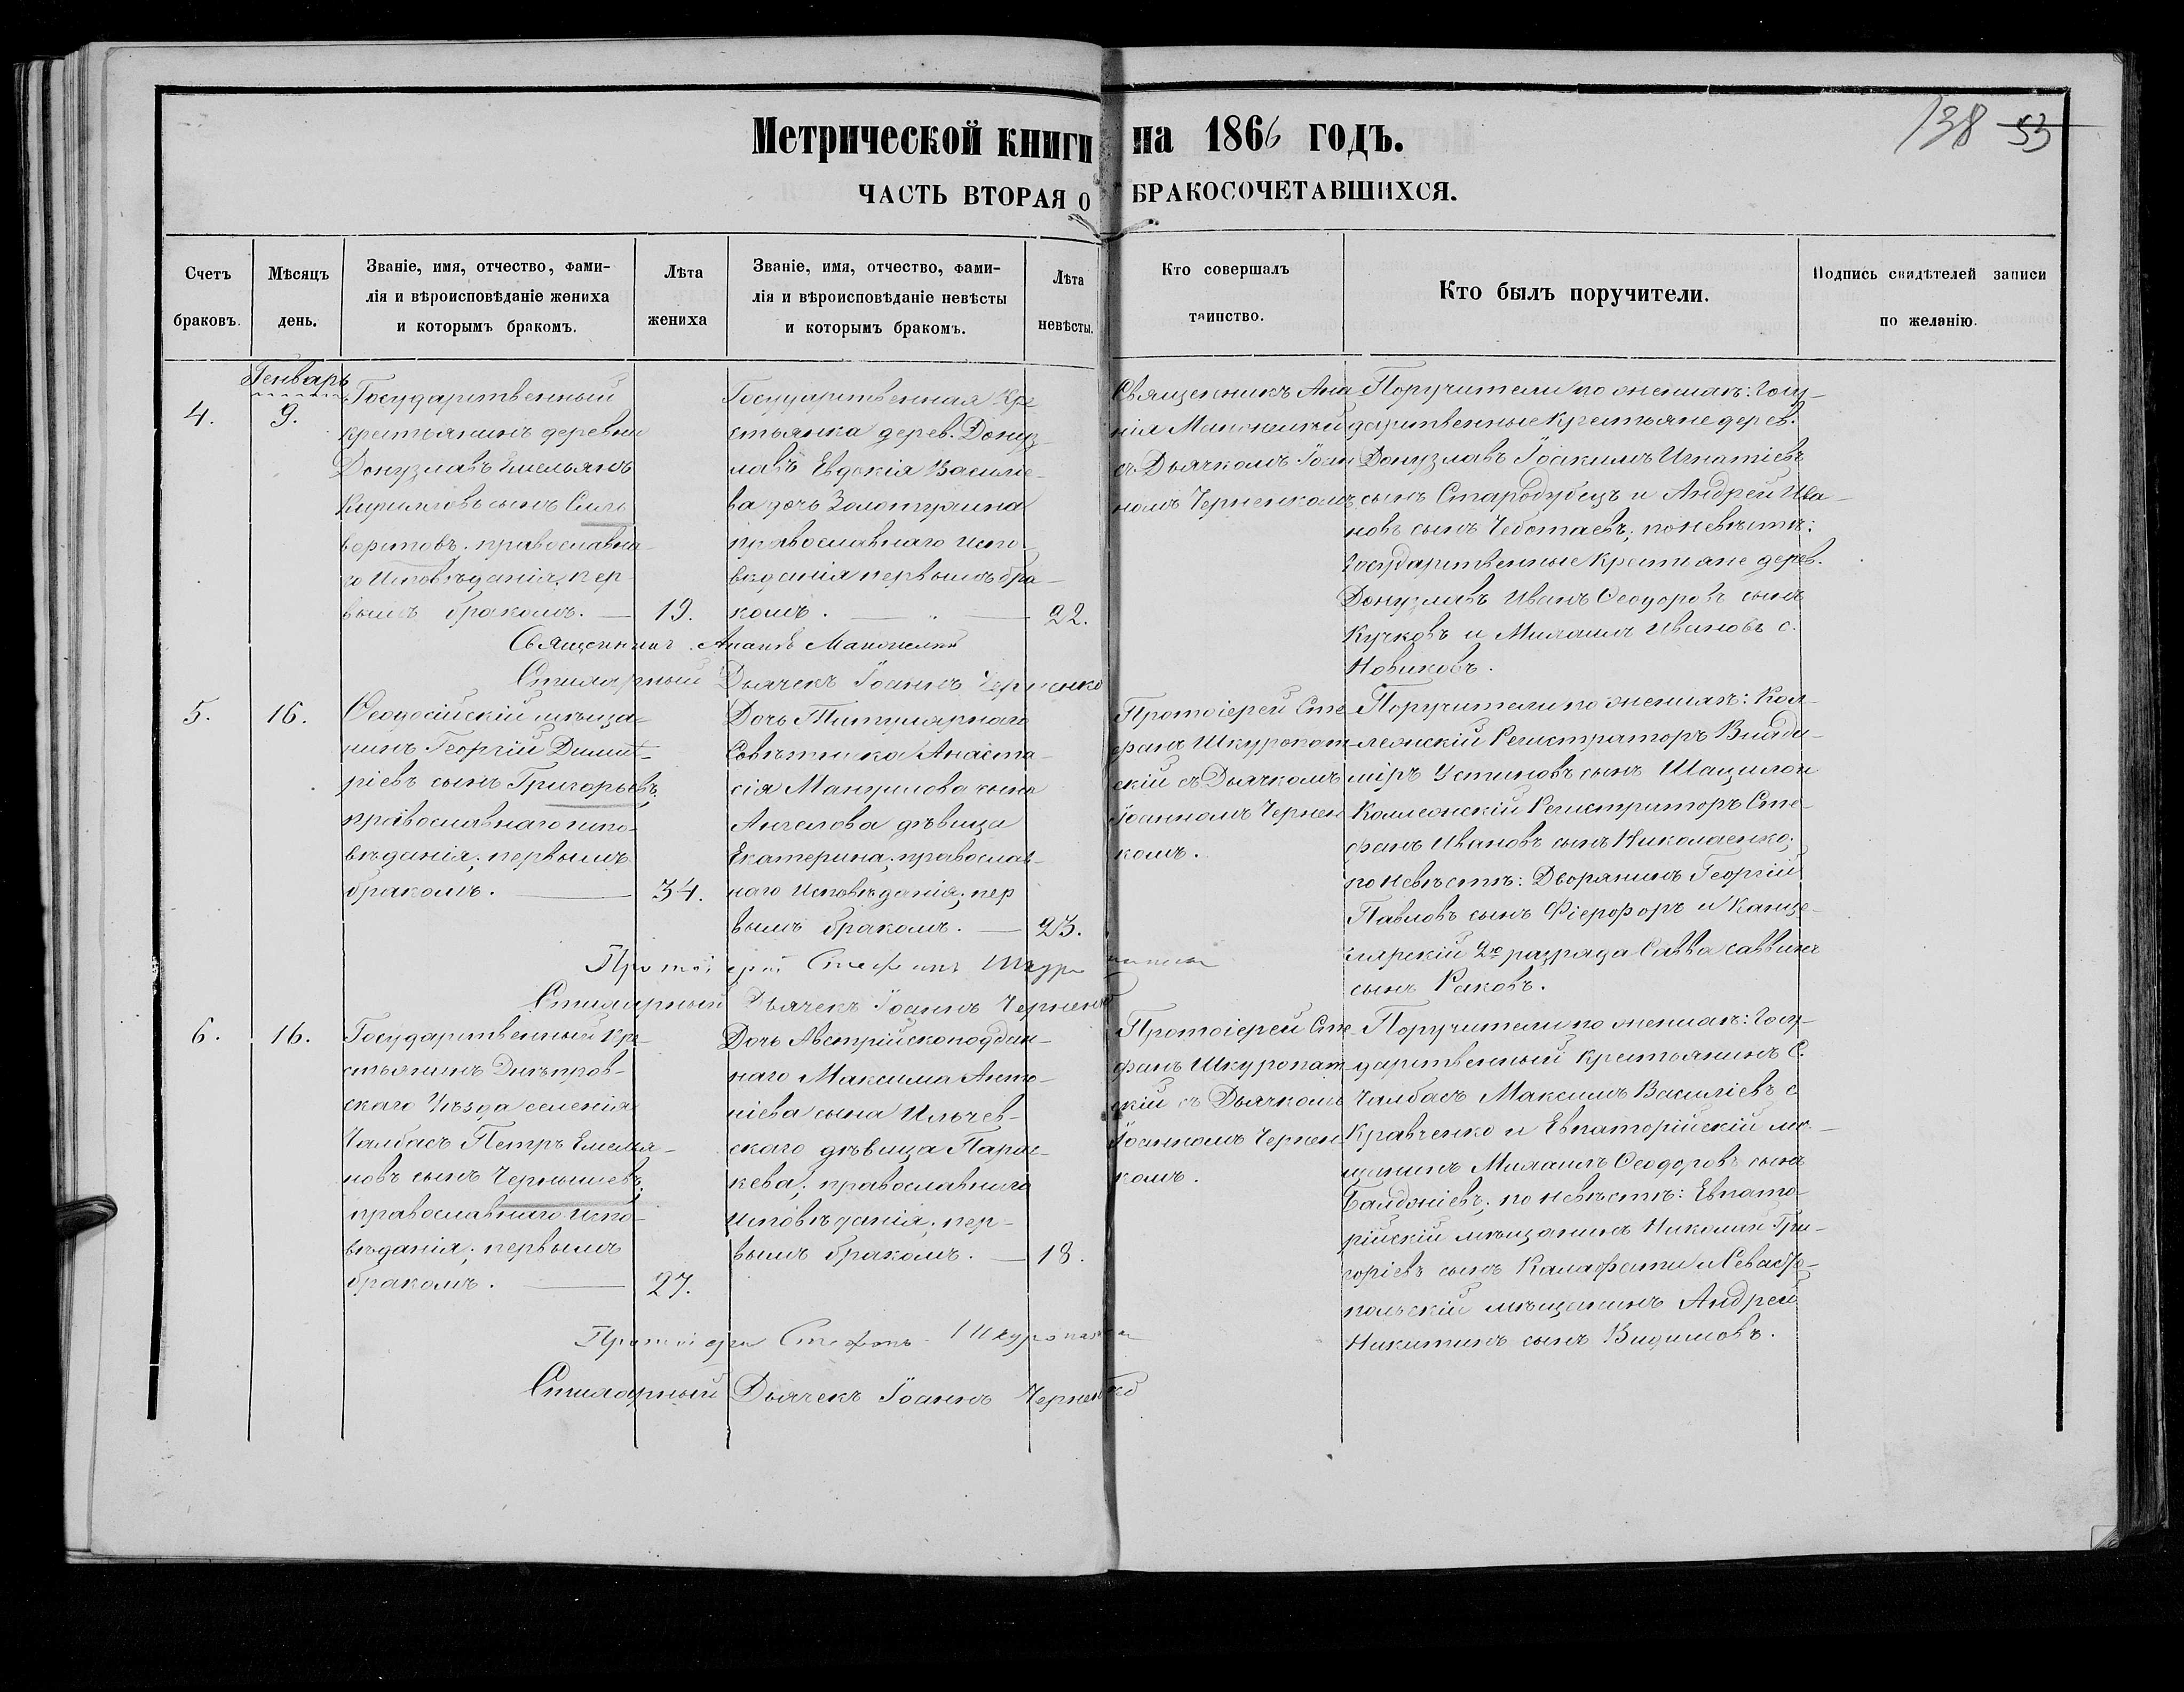 138 53
Метрической книги на 1866 годъ.
ЧАСТЬ ВТОРАЯ О БРАКОСОЧЕТАВШИХСЯ.
Счетъ
браковъ.
Мѣсяцъ
день.
Званіе, имя, отчество, фами-
лія и вѣроисповѣданіе жениха
и которымъ бракомъ.
Лѣта
жениха
Званіе, имя, отчество, фами-
лія и вѣроисповѣданіе невѣсты
и которымъ бракомъ.
Лѣта
невѣсты.
Кто совершалъ
таинство.
Кто былъ поручители.
Подпись свидѣтелей записи
по желанію.
Генварь
4.
9.
Государственный
крестьянинъ деревни
Донузлавъ Емельянъ
сынъ
православна-
го Исповѣданія, пер-
вымъ бракомъ. —
19.
Государственная Кре
стьянка дерев. Донуз-
лавъ Евдокія Василье-
ва дочь
православнаго испо-
вѣданія первымъ бра-
комъ. —
22.
Священникъ Ана
нія
съ Дьячкомъ Іоан
номъ Черненкомъ
Поручители по женихѣ: Госу-
дарственные Крестьяне дерев.
Донузлавъ Іоакимъ Игнатіевъ
сынъ Стародубецъ и Андрей Ива-
новъ сынъ Чеботаевъ; по невѣстѣ:
Государственные Крестьяне дерев.
Донузлавъ Иванъ Ѳеодоровъ сынъ
Кучковъ и Михаилъ Ивановъ с.
Новиковъ.
Священникъ
Стихарный Дьячекъ Іоаннъ Черненко
5.
16.
Ѳеодосійскій мѣща-
нинъ Георгій Димит-
ріевъ сынъ Григорьевъ;
православнаго испо-
вѣданія; первымъ
бракомъ. —
34.
Дочь Титулярнаго
Совѣтника Анаста-
сія сына
Ангелова дѣвица
Екатерина; православ-
наго Исповѣданія; пер
вымъ бракомъ. —
23.
Протоіерей Сте
фанъ Шкуропат-
скій съ Дьячкомъ
Іоанномъ Чернен
комъ.
Поручители по женихѣ: Кол-
лежскій Регистраторъ Влади-
міръ Устиновъ сынъ
Коллежскій Регистраторъ Сте-
фанъ Ивановъ сынъ Николаенко;
по Невѣстѣ: Дворянинъ Георгій
Павловъ сынъ Фіерофоръ и Канце-
лярскій 2го разряда Савва Саввинъ
сынъ Раковъ.
Протоіерей Стефанъ
Стихарный Дьячекъ Іоаннъ Черненко
6.
16.
Государственный Кре-
стьянинъ Днѣпров-
скаго Уѣзда селенія
Чалбасъ Петръ Емелья-
новъ сынъ Чернышевъ;
православнаго испо-
вѣданія; первымъ
бракомъ. —
27.
Дочь Австрійскоподдан-
наго Максима Анто-
ніева сына Ильчев-
скаго дѣвица Парас-
кева; православнаго
Исповѣданія; пер-
вымъ бракомъ. —
18.
Протоіерей Сте
фанъ Шкуропат-
скій съ Дьячкомъ
Іоанномъ Чернен
комъ.
Поручители по женихѣ: Госу-
дарственный Крестьянинъ С.
Чалбасъ Максимъ Василіевъ с
Кравченко и Евпаторійскій мѣ-
щанинъ Михаилъ Ѳеодоровъ сынъ
Балджіевъ; по невѣстѣ: Евпато-
рійскій мѣщанинъ Николай Гри-
горіевъ сынъ Калафати и Севасто-
польскій мѣщанинъ Андрей
Никитинъ сынъ Видимовъ.
Протоіерей Стефанъ
Стихарный Дьячекъ Іоаннъ Черненко